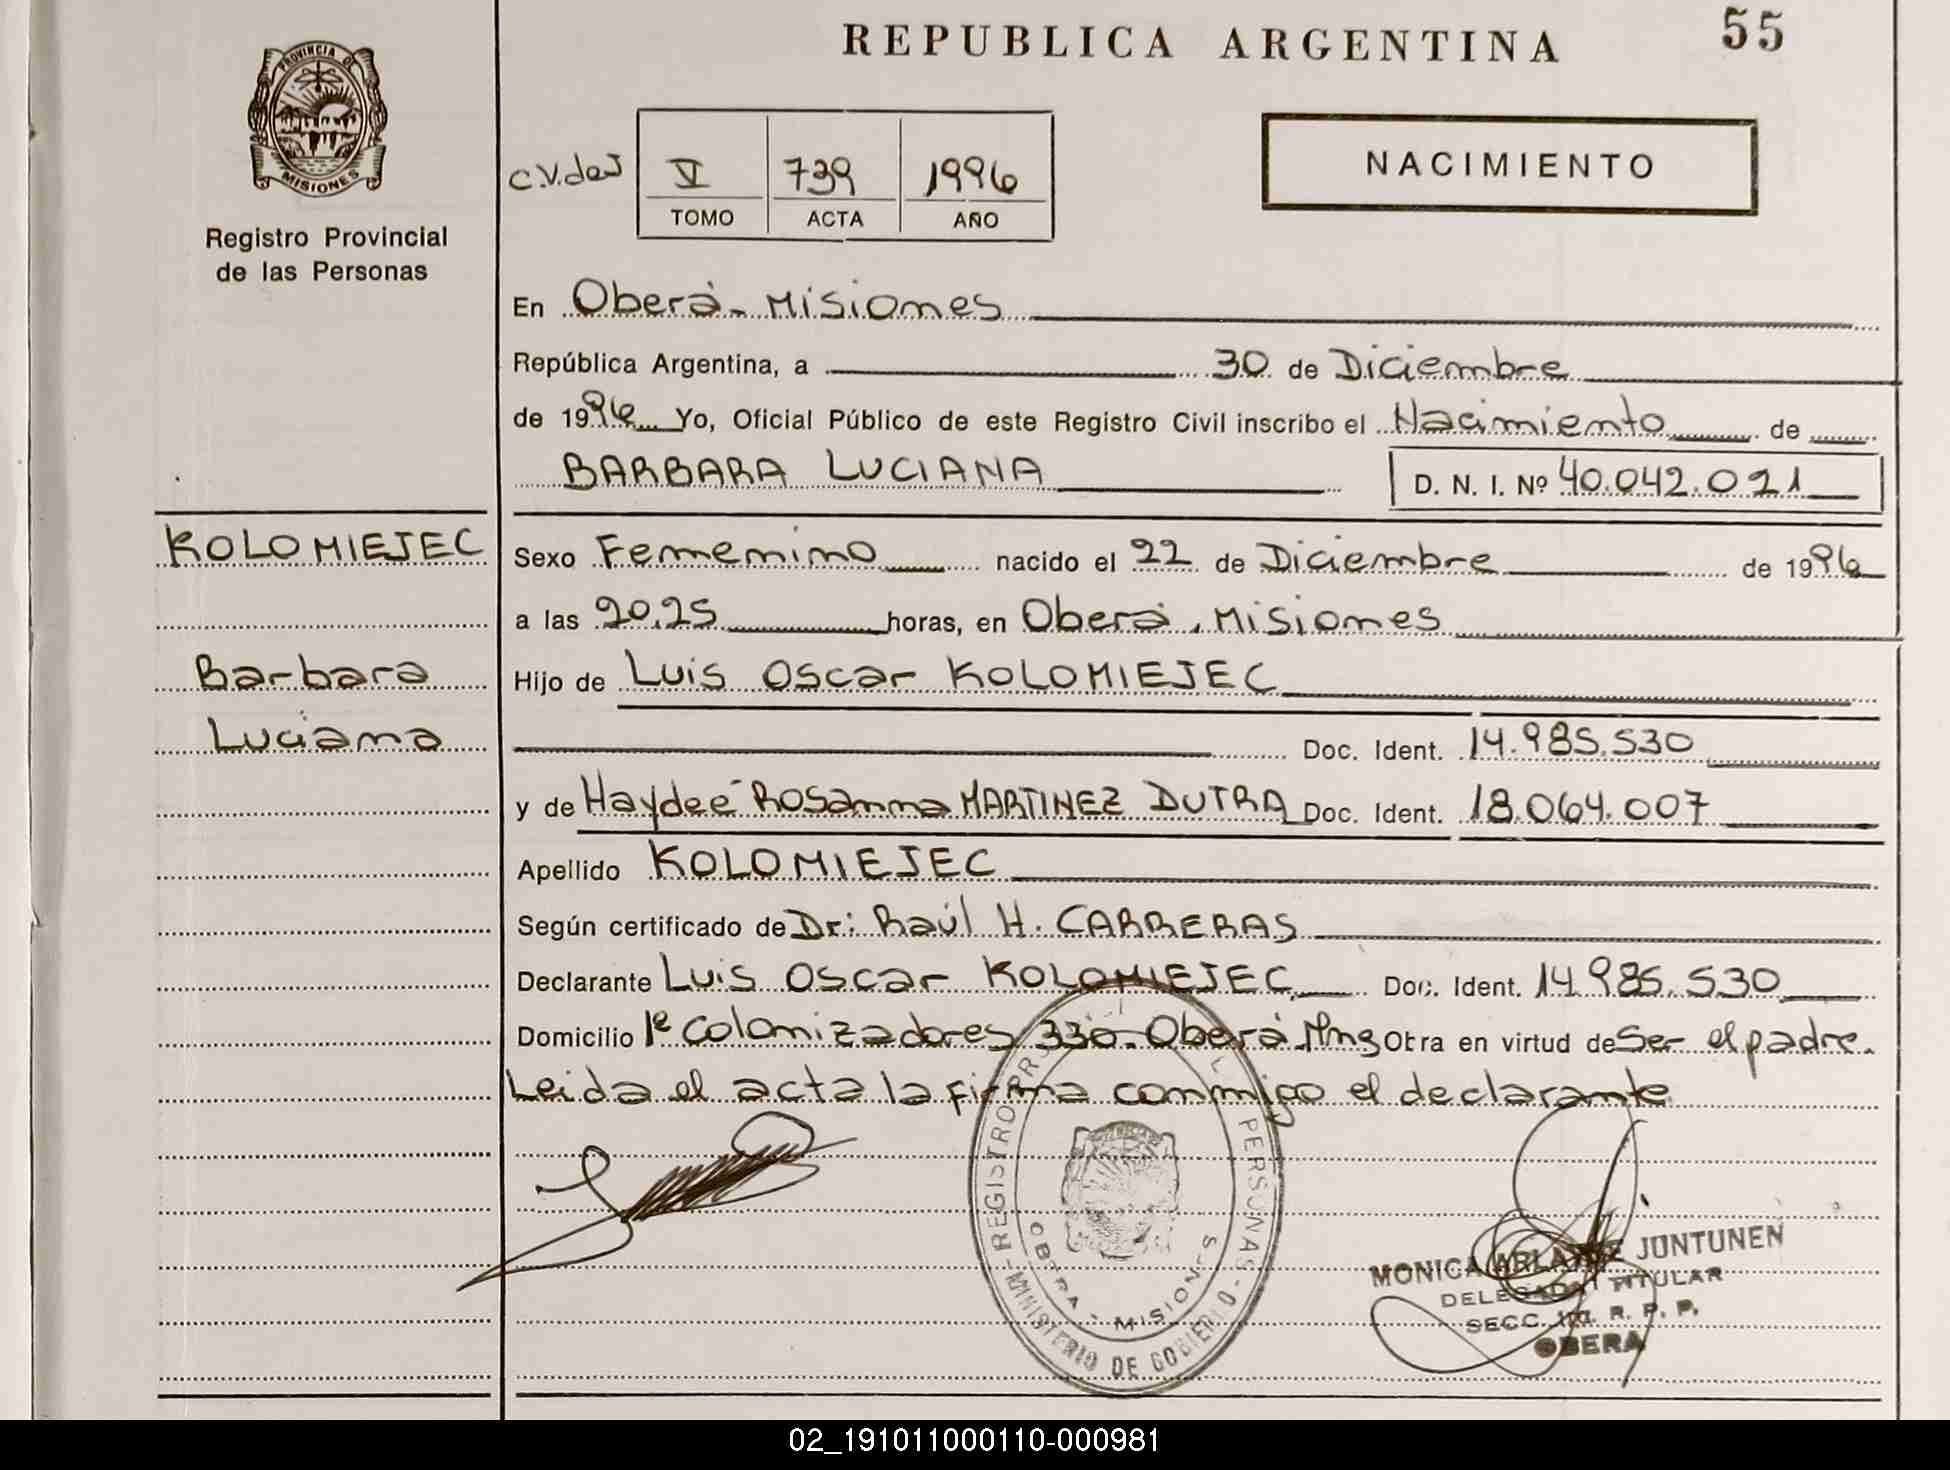 REPUBLICA ARGENTINA
55
PROVINCIA DE
MISIONES
Registro Provincial
de las Personas
C.V.deJ
V 739 1996
TOMO ACTA AÑO
NACIMIENTO
En Oberá - Misiones
República Argentina, a 30 de Diciembre
de 1996 Yo, Oficial Público de este Registro Civil inscribo el Nacimiento de
BARBARA LUCIANA D. N. I. Nº 40.042.021
KOLOMIEJEC
Barbara
Luciana
Sexo Femenino nacido el 22 de Diciembre de 1996
a las 20,25 horas, en Oberá, Misiones
Hijo de Luis Oscar KOLOMIEJEC
Doc. Ident. 14.985.530
y de Haydeé Rosanna MARTINEZ DUTRA Doc. Ident. 18.064.007
Apellido KOLOMIEJEC
Según certificado de Dr: Raúl H. CARRERAS
Declarante Luis Oscar KOLOMIEJEC Doc. Ident. 14.985.530
Domicilio 1º Colonizadores 330 - Oberá Mns Obra en virtud de Ser el padre.
Leida el acta la firma conmigo el declarante
REGISTRO PERSONAS
MINISTERIO DE GOBIERNO
OBERA - MISIONES
MONICA JUNTUNEN
DELEGADA TITULAR
SECC. R. P. P.
OBERA
02_191011000110-000981